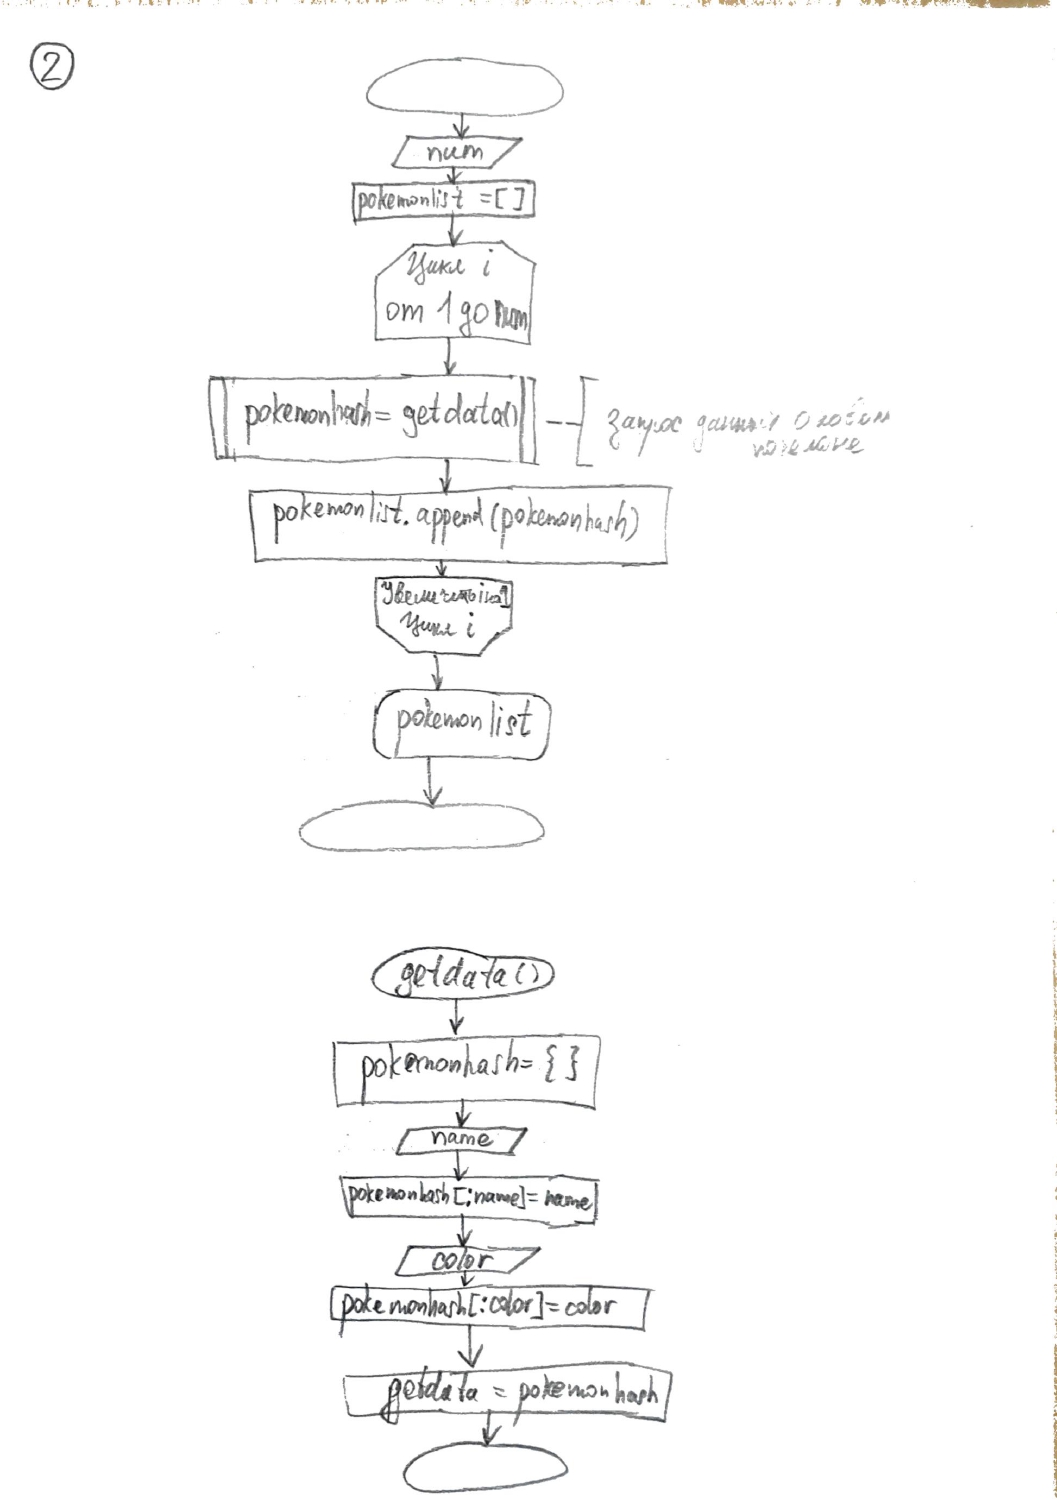 2
num
pokemonlist = [ ]
Цикл i
от 1 до num
pokemonhash = getdata()
Запрос данных о новом
покемоне
pokemonlist.append(pokemonhash)
Увеличить i на 1
Цикл i
pokemonlist
getdata()
pokemonhash = { }
name
pokemonhash[:name] = name
color
pokemonhash[:color] = color
getdata = pokemonhash